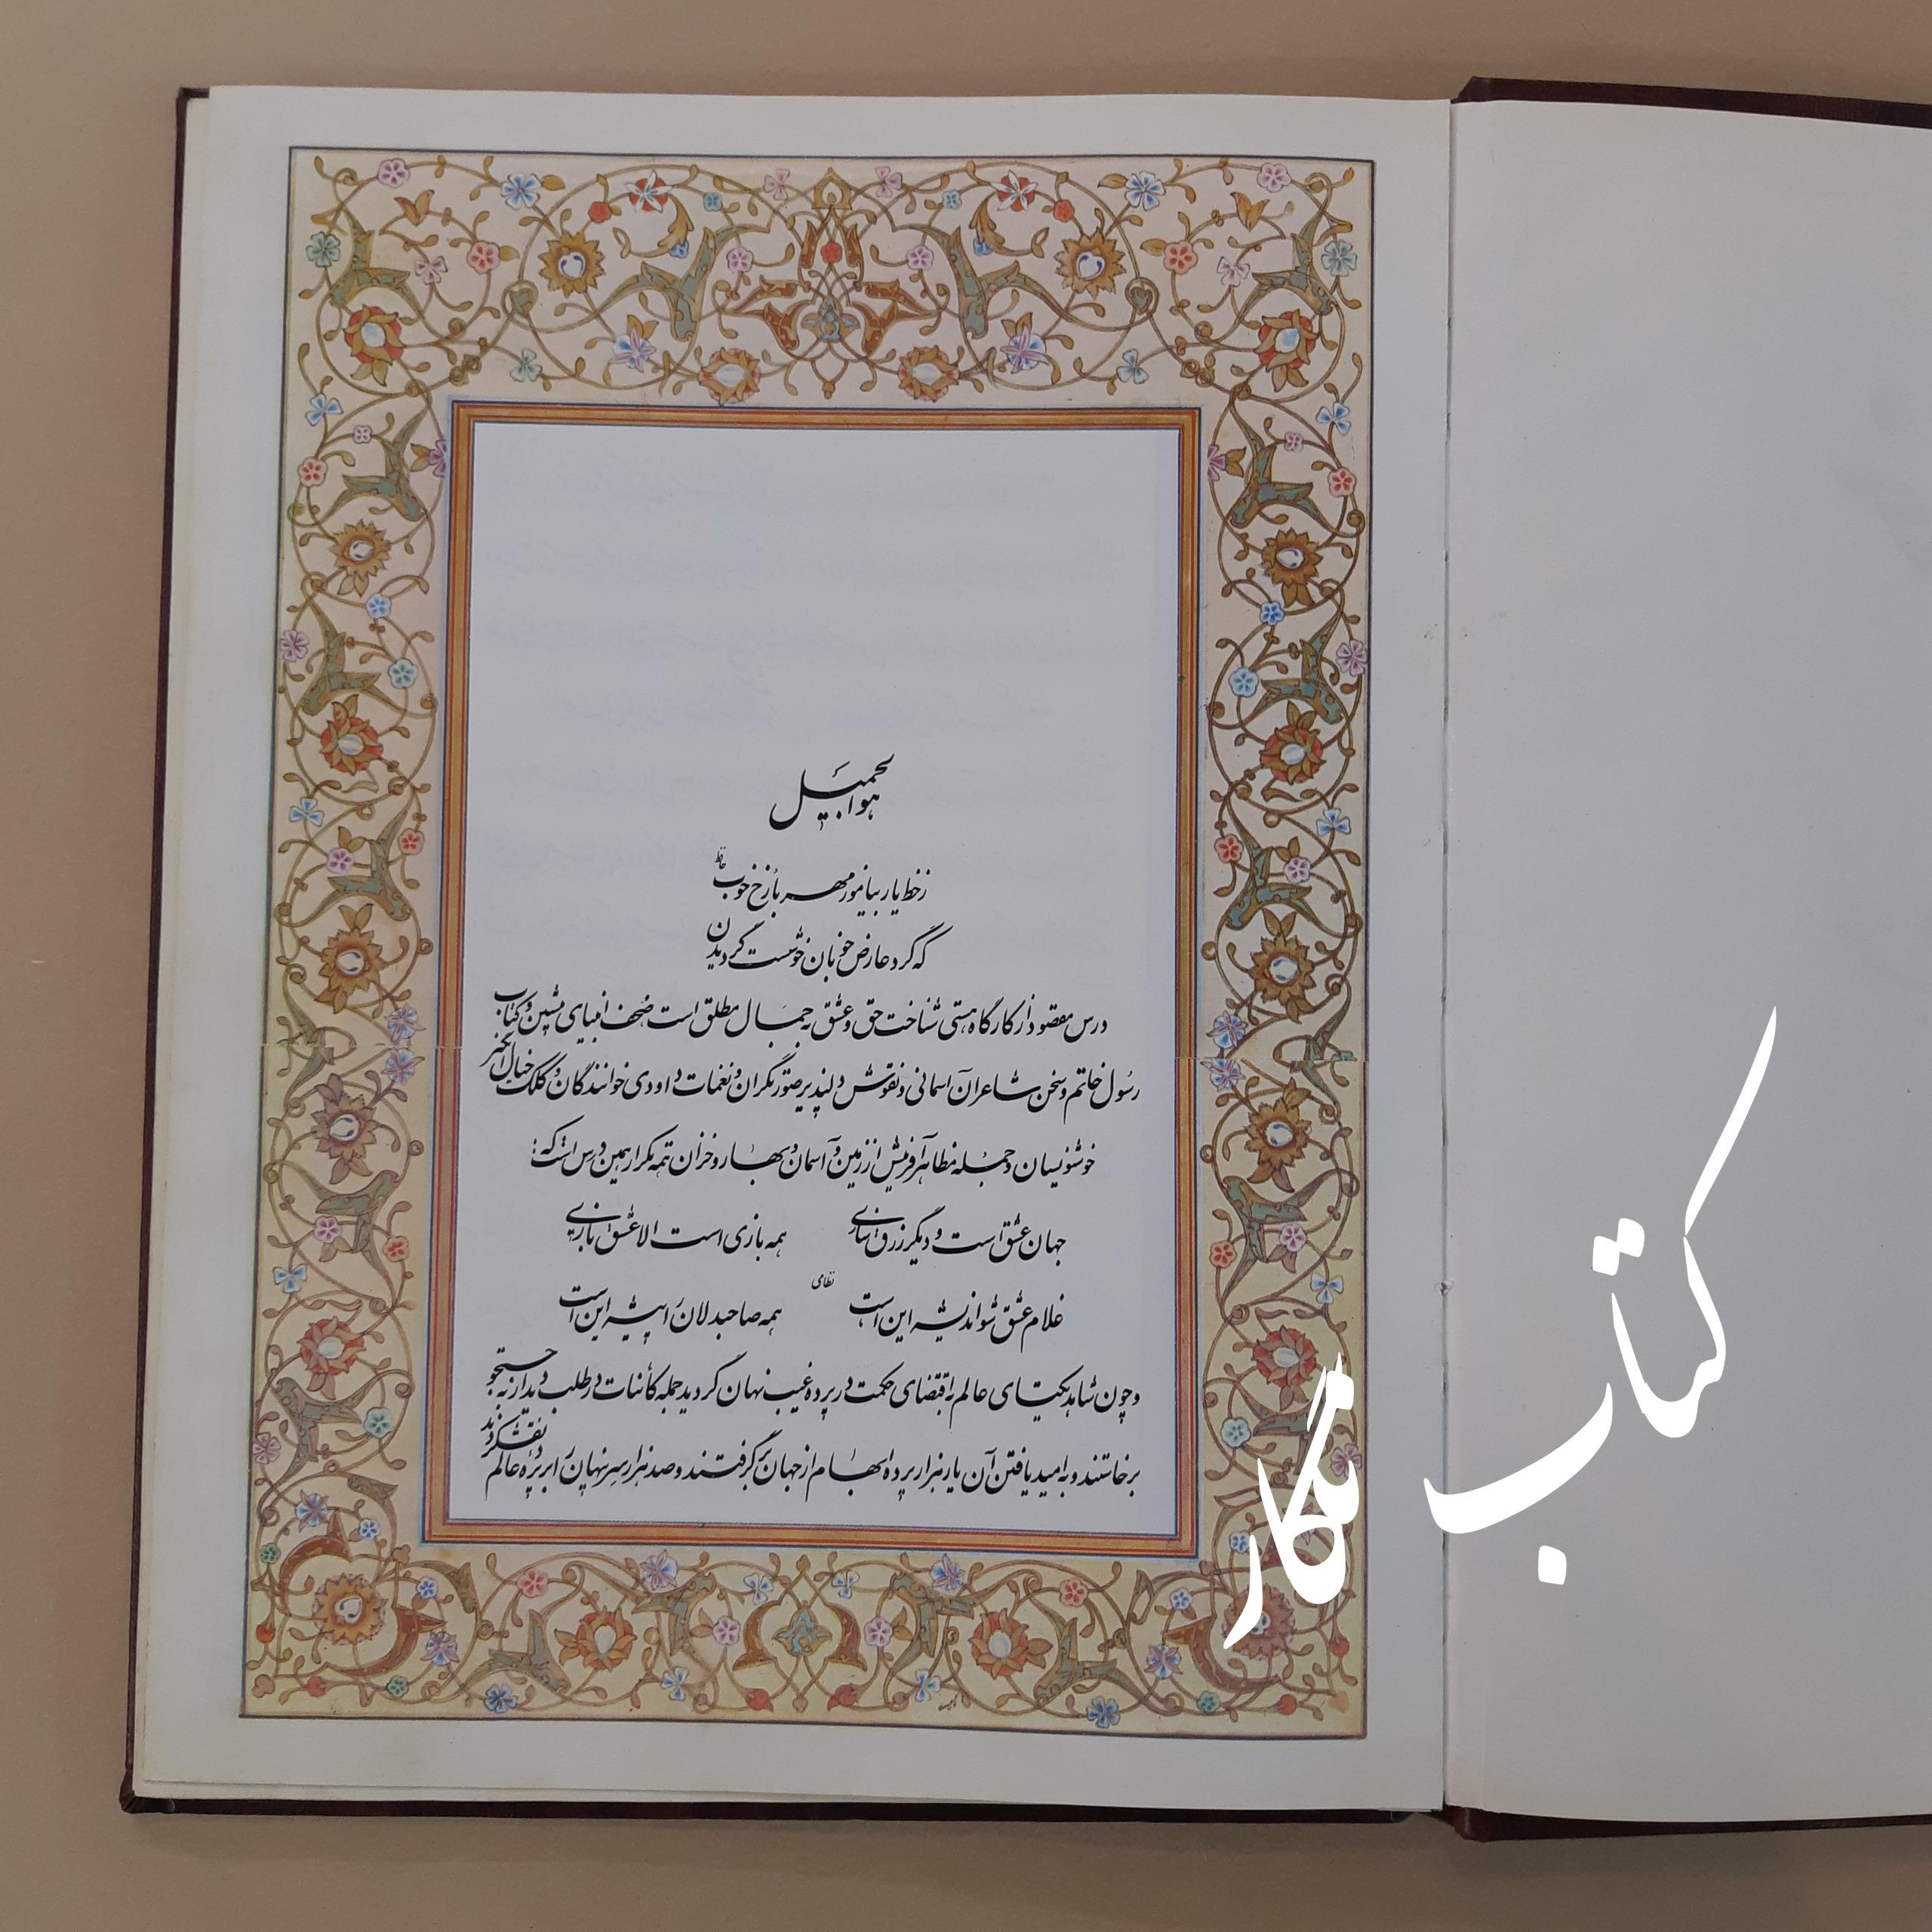 هوالجمیل
ز خط یار بیاموز مهر با رخ خوب حافظ
که گرد عارض خوبان خوشست گردیدن
درس مقصود از کارگاه هستی شناخت حق و عشق به جمال مطلق است صُحُف انبیای پیشین و کتاب
رسول خاتم و سخن شاعران آسمانی و نقوش دلپذیر صورتگران و نغمات داودی خوانندگان و کلک خیال انگیز
خوشنویسان و جمله مظاهر آفرینش از زمین و آسمان و بهار و خزان همه تکرار همین درس است که:
جهان عشق است و دیگر زرق سازی همه بازی است الا عشق بازی
نظامی
غلام عشق شو اندیشه این است همه صاحبدلان را پیشه این است
و چون شاهد یکتای عالم به اقتضای حکمت در پرده غیب نهان گردید جمله کائنات در طلب دیدار به جستجو
برخاستند و به امید یافتن آن یار هزار پرده ابهام از جهان برگرفتند و صد هزار سر نهان را بر پرده عالم نقش کردند
کتاب
نگار